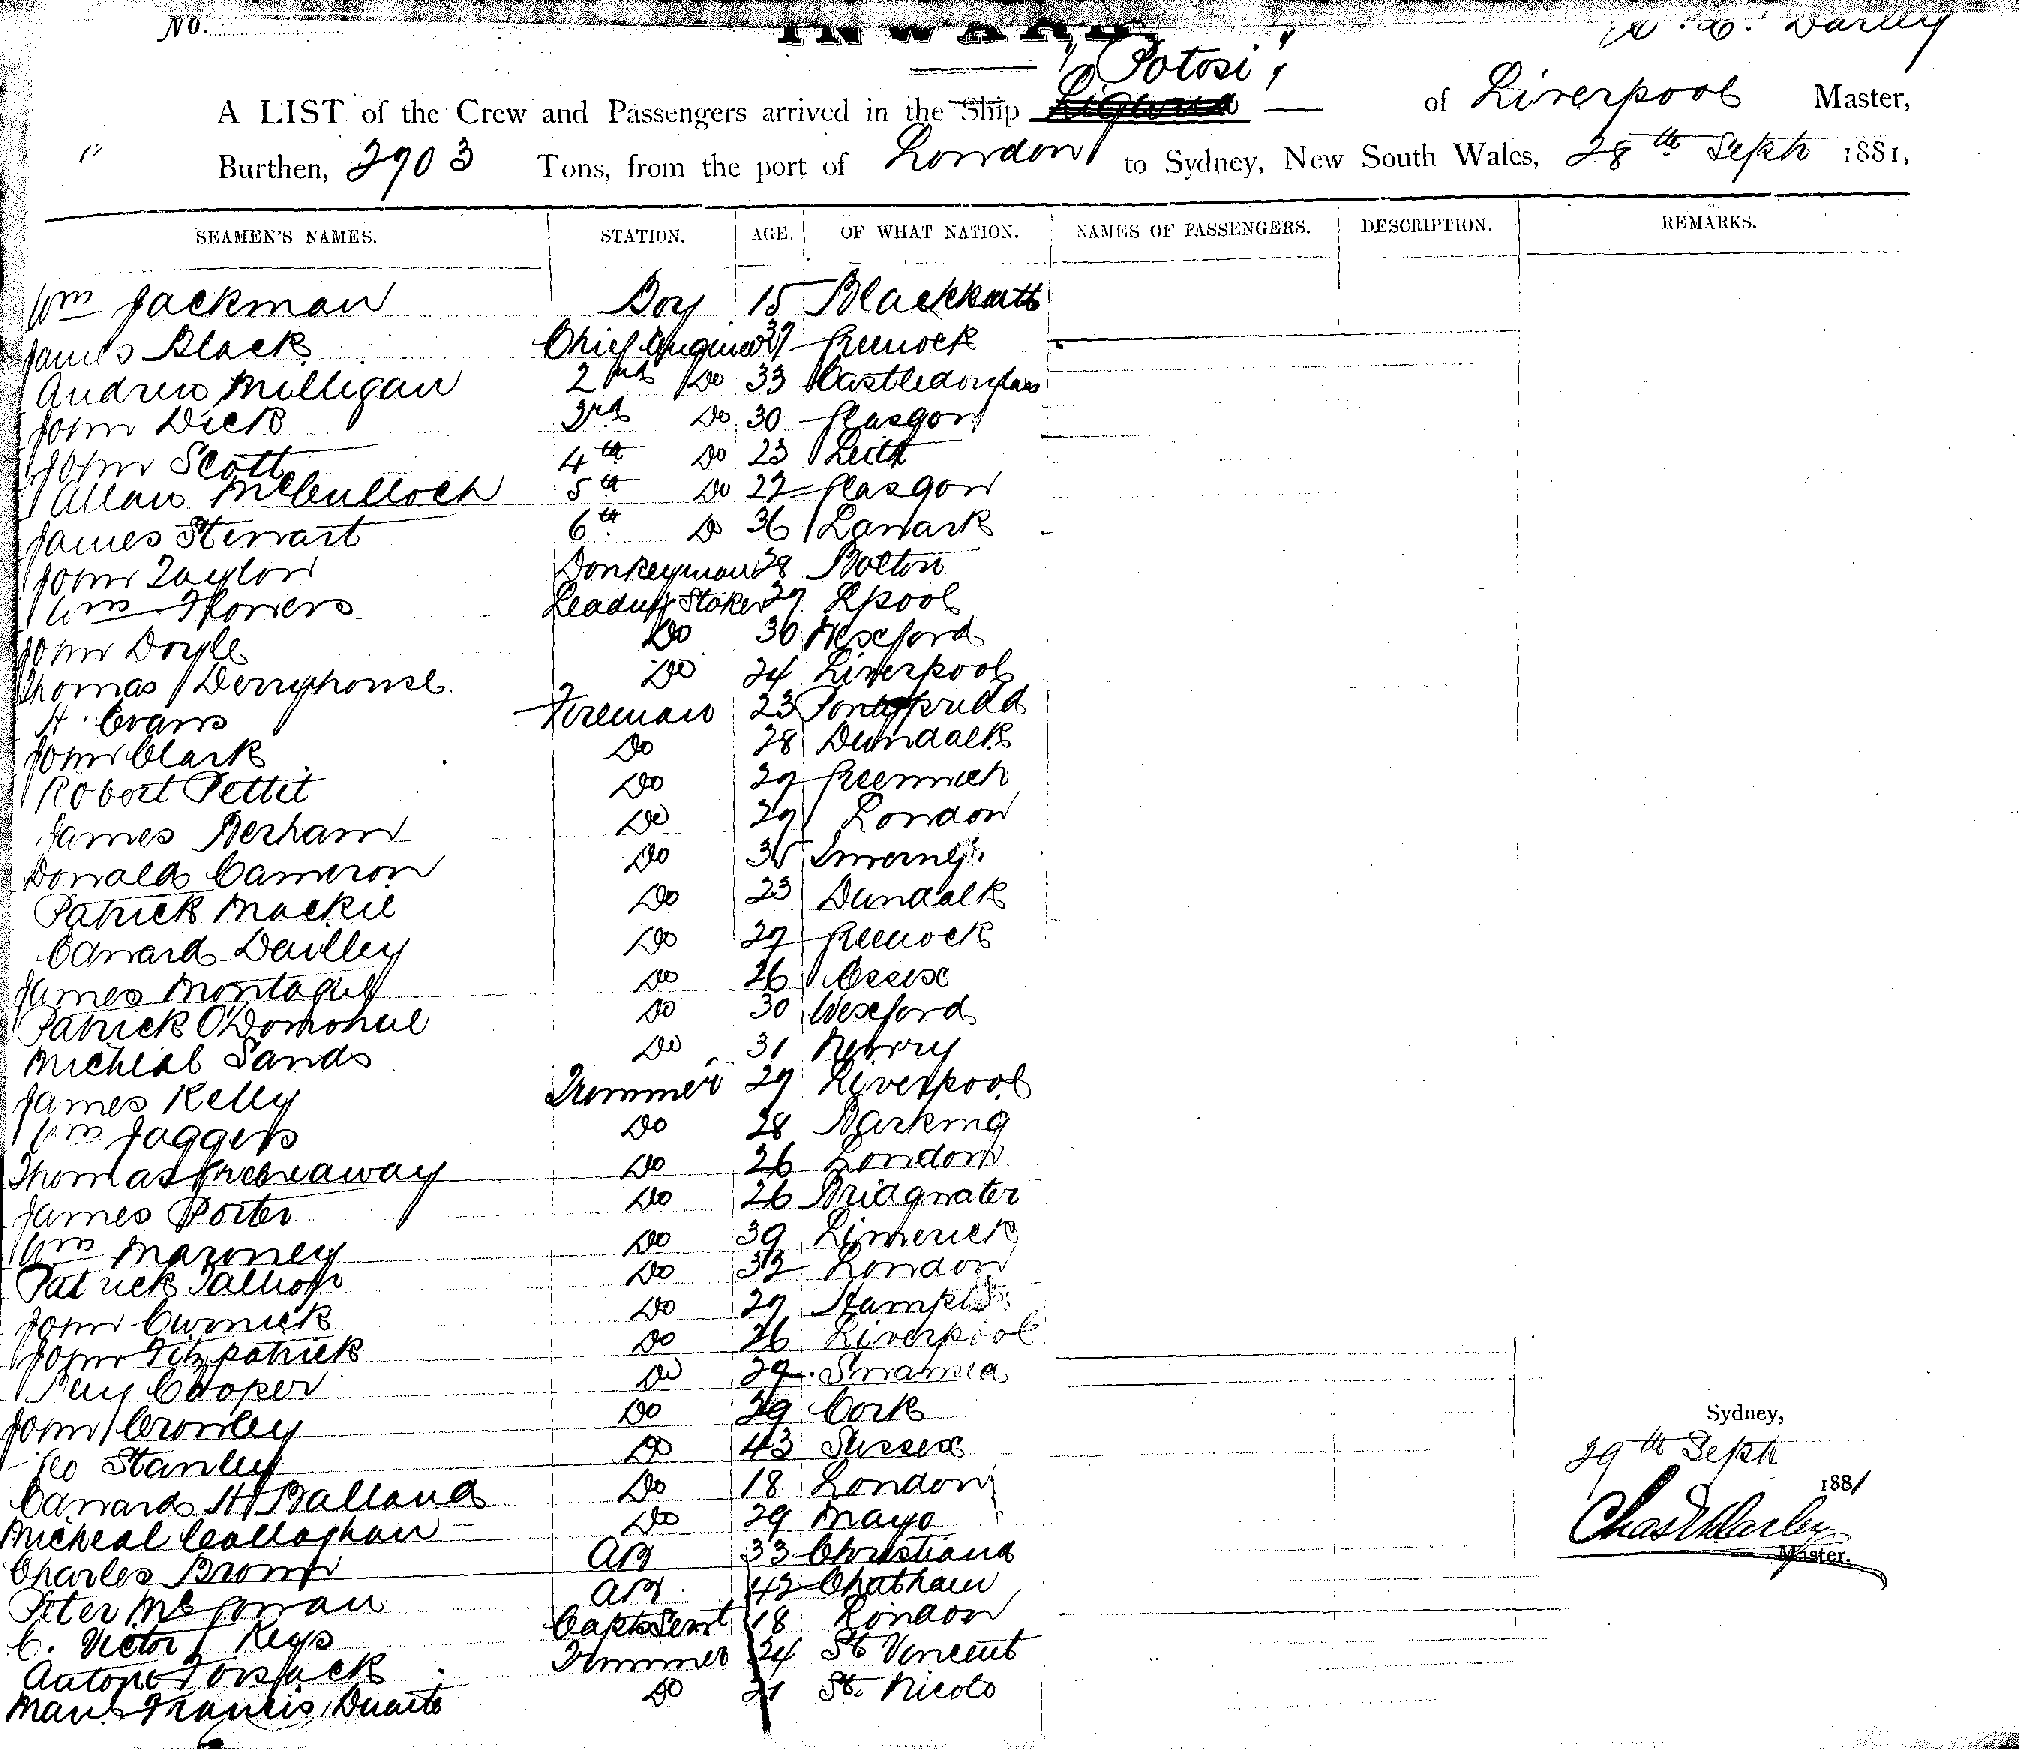 No.
INWARD.
Darley
"Potosi"
A LIST of the Crew and Passengers arrived in the Ship Liguria of Liverpool Master,
Burthen, 2903 Tons, from the port of London to Sydney, New South Wales, 28th Septr 1881,
SEAMEN'S NAMES. STATION. AGE. OF WHAT NATION. NAMES OF PASSENGERS. DESCRIPTION. REMARKS.
Wm Jackman Boy 15 Blackheath
James Black Chief Engineer 37 Greenock
Andrew Milligan 2nd Do 33 Castledouglas
John Dick 3rd Do 30 Glasgow
John Scott 4th Do 23 Leith
Allan McCulloch 5th Do 22 Glasgow
James Stewart 6th Do 36 Lanark
John Taylor Donkeyman 28 Bolton
Wm Flowers Leading Stoker 27 Lpool
John Doyle Do 30 Wexford
Thomas Derryhouse Do 24 Liverpool
H. Evans Fireman 23 Pontypridd
John Clark Do 28 Dundalk
Robert Pettit Do 27 Greenwich
James Derham Do 27 London
Donald Cameron Do 35 Inverness
Patrick Mackie Do 23 Dundalk
Edward Do 27 Greenock
James Montague Do 26 Essex
Patrick O'Donohue Do 30 Wexford
Micheal Sands Do 31 Newry
James Kelly Trimmer 27 Liverpool
Wm Jaggers Do 28 Barking
Thomas Greenaway Do 26 London
James Porter Do 26 Bridgwater
Wm Maroney Do 39 Limerick
Patrick Do 32 London
John Curnick Do 27
John Fitzpatrick Do 26 Liverpool
Benj Cooper Do 29 Swansea
John Crowley Do 29 Cork
Geo Stanley Do 43 Sussex
Edward H Balland Do 18 London
Micheal Callaghan Do 29 Mayo
Charles Brown AB 33 Christiana
Peter McGowan AB 42 Chatham
C. Victor Keys Capts Servt 18 London
Antone Trimmer 24 St Vincent
Francis Duarte Do 21 St. Nicolo
Sydney,
29th Septr
1881
Chas Darley
Master.